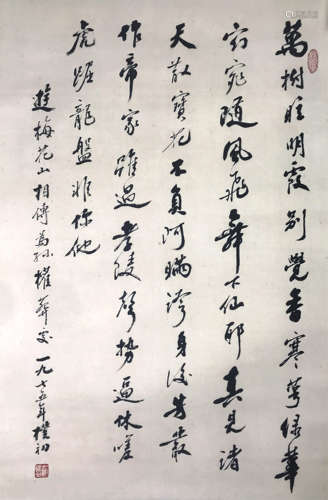 萬樹暗明霞別覺香寒萼綠華
窈窕隨風飛舞下仙耶真見諸
天散寶花 不負阿瞞誇身後芳叢
作帝家雖過孝陵聲勢逼休嗟
虎踞龍盤非你他
遊梅花山相傳為孫權葬處 一九七五年 樸初